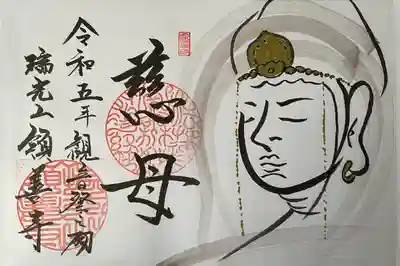 慈母
令和五年観音
瑞光山領善寺